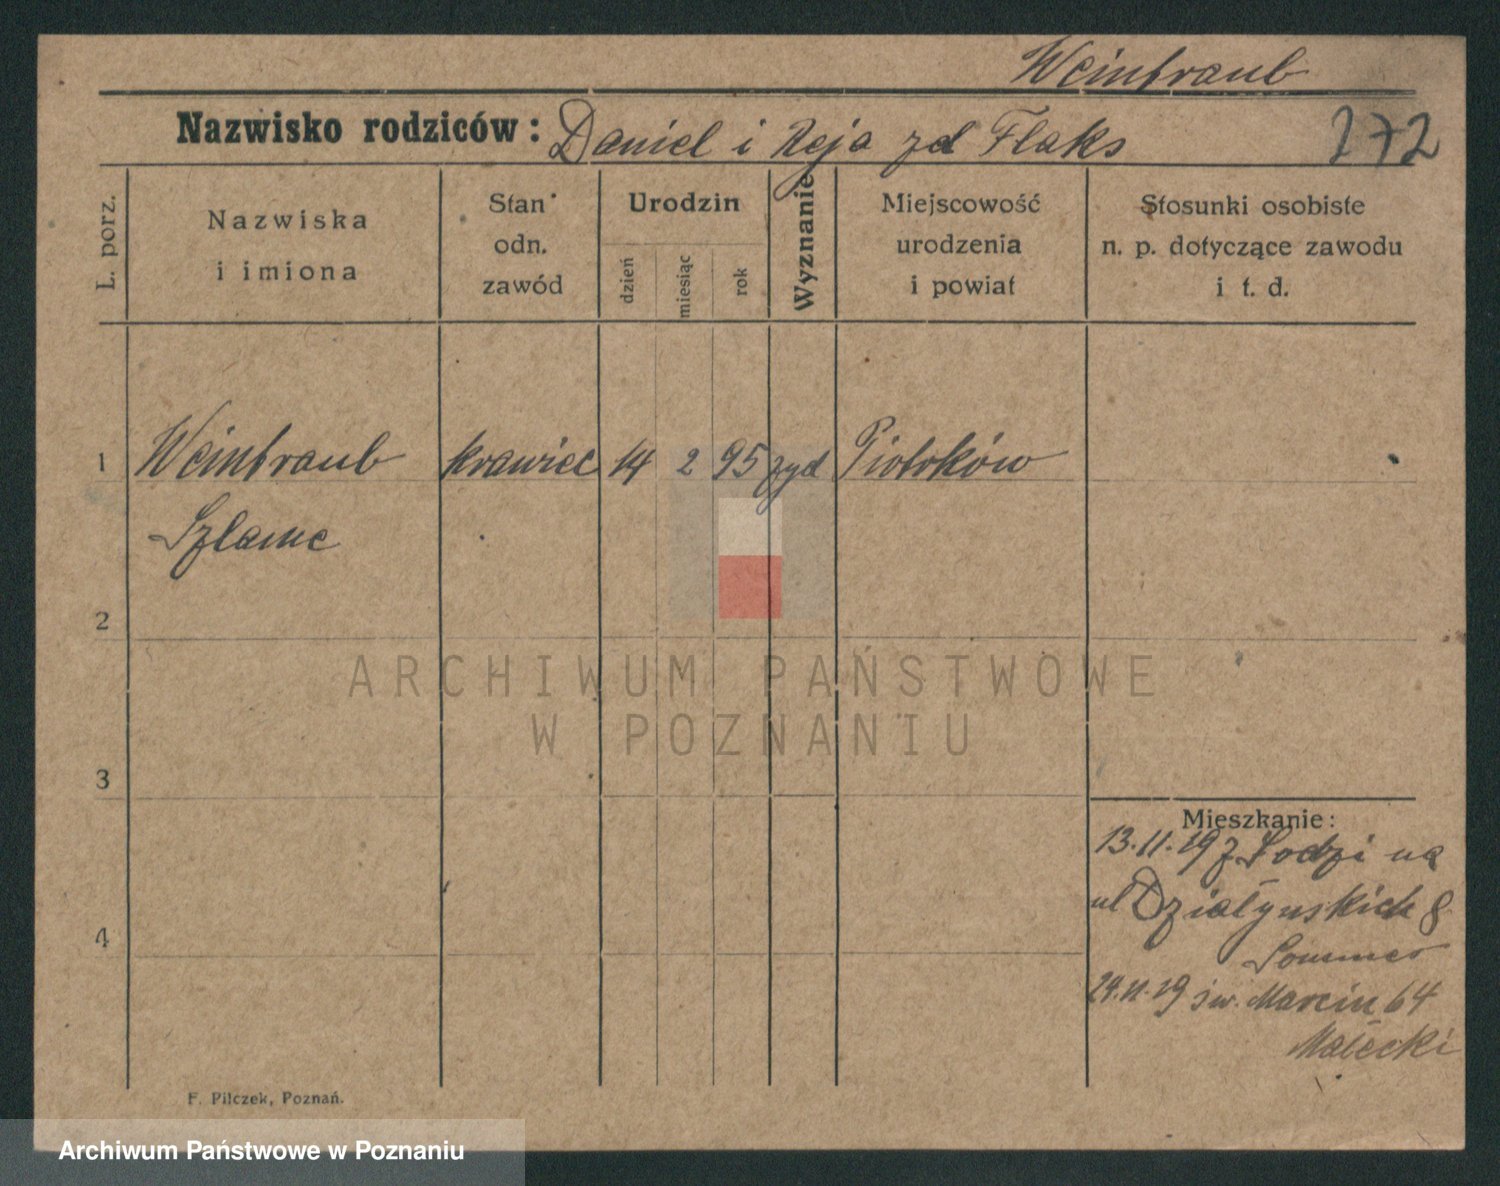 Weintraub
Nazwisko rodziców: Daniel i Reja zd Flaks 272
L. porz.
Nazwiska
i imiona
Stan
odn.
zawód
Urodzin
dzień
miesiąc
rok
Wyznanie
Miejscowość
urodzenia
i powiat
Stosunki osobiste
n. p. dotyczące zawodu
i t. d.
1 Weintraub krawiec 14 2 95 żyd Piotrków
Szlame
2
3
4
Mieszkanie:
13.11.19 z Łodzi na
ul Działyńskich 8
Sommer
24.11.19 św. Marcin 64
Małecki
F. Pilczek, Poznań.
ARCHIWUM PAŃSTWOWE
W POZNANIU
Archiwum Państwowe w Poznaniu